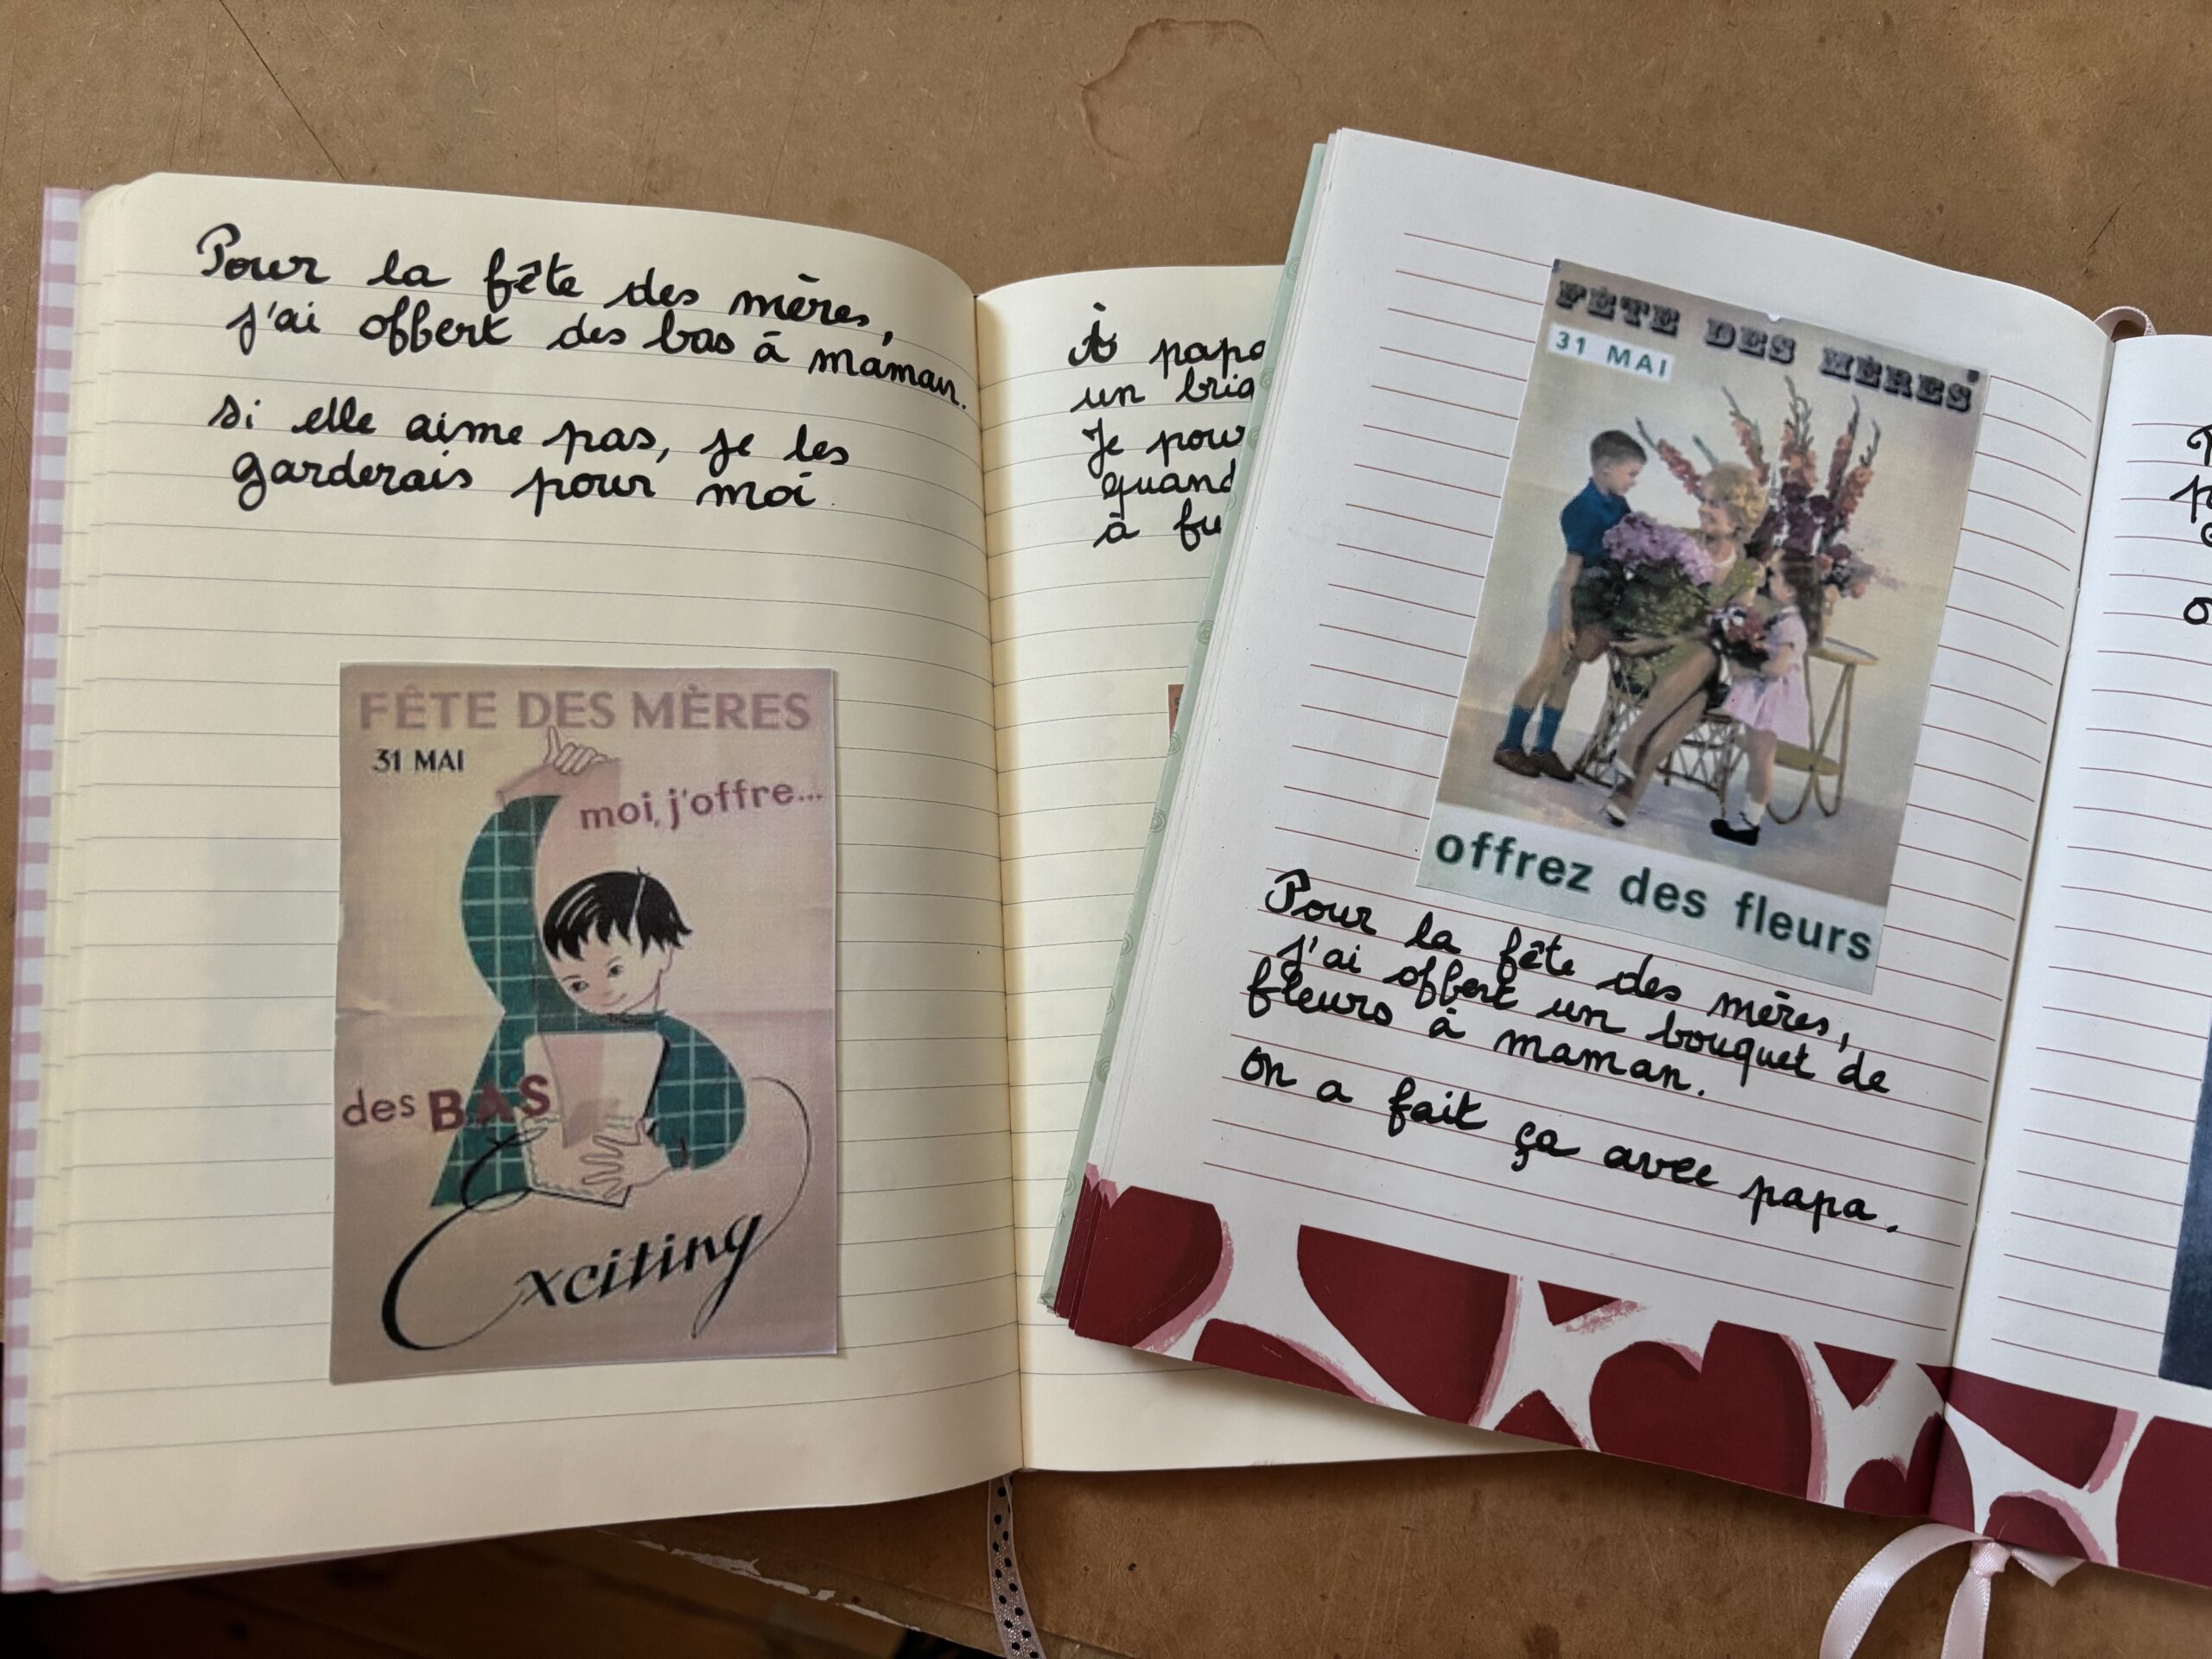 Pour la fête des mères,
j'ai offert des bas à maman.
si elle aime pas, je les
garderais pour moi.
FÊTE DES MÈRES
31 MAI
moi, j'offre...
des BAS
Exciting
À
un
Je
à
FÊTE DES MÈRES
31 MAI
offrez des fleurs
Pour la fête des mères,
j'ai offert un bouquet de
fleurs à maman.
on a fait ça avec papa.